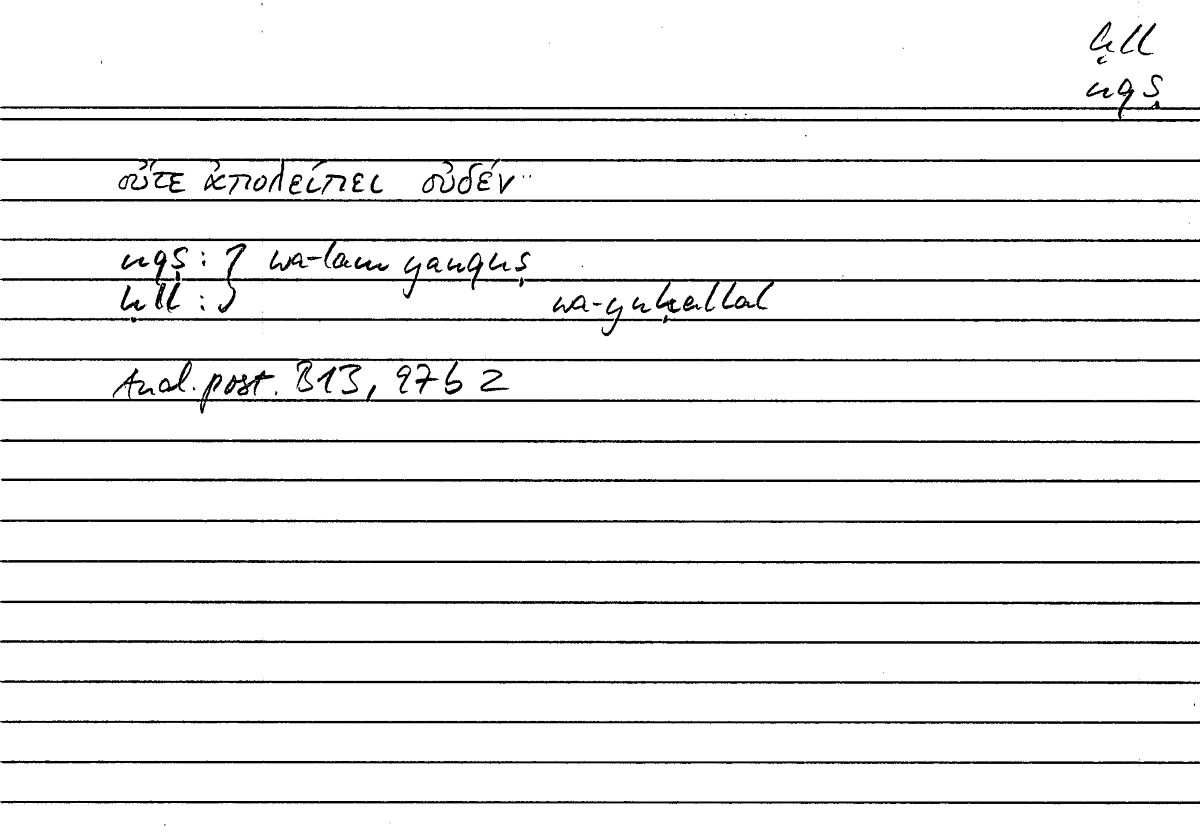 ḫll
nqṣ
οὔτε ἀπολείπει οὐδέν
nqṣ : } wa-lam yanquṣ
ḫll : wa-yuḫallal
Anal. post. B13, 97b 2